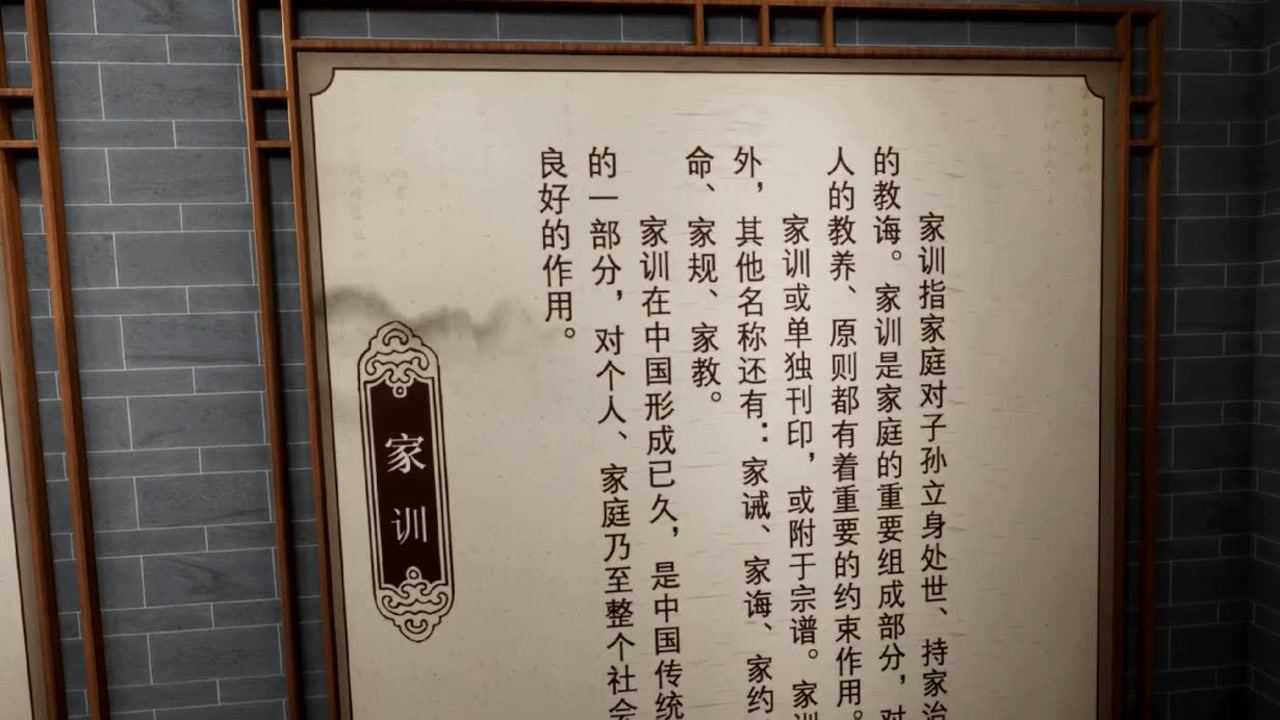 家训指家庭对子孙立身处世、持家治
的教诲。家训是家庭的重要组成部分，对
人的教养、原则都有着重要的约束作用。
家训或单独刊印，或附于宗谱。家训
外，其他名称还有：家诫、家诲、家约
命、家规、家教。
家训在中国形成已久，是中国传统
的一部分，对个人、家庭乃至整个社会
良好的作用。
家训